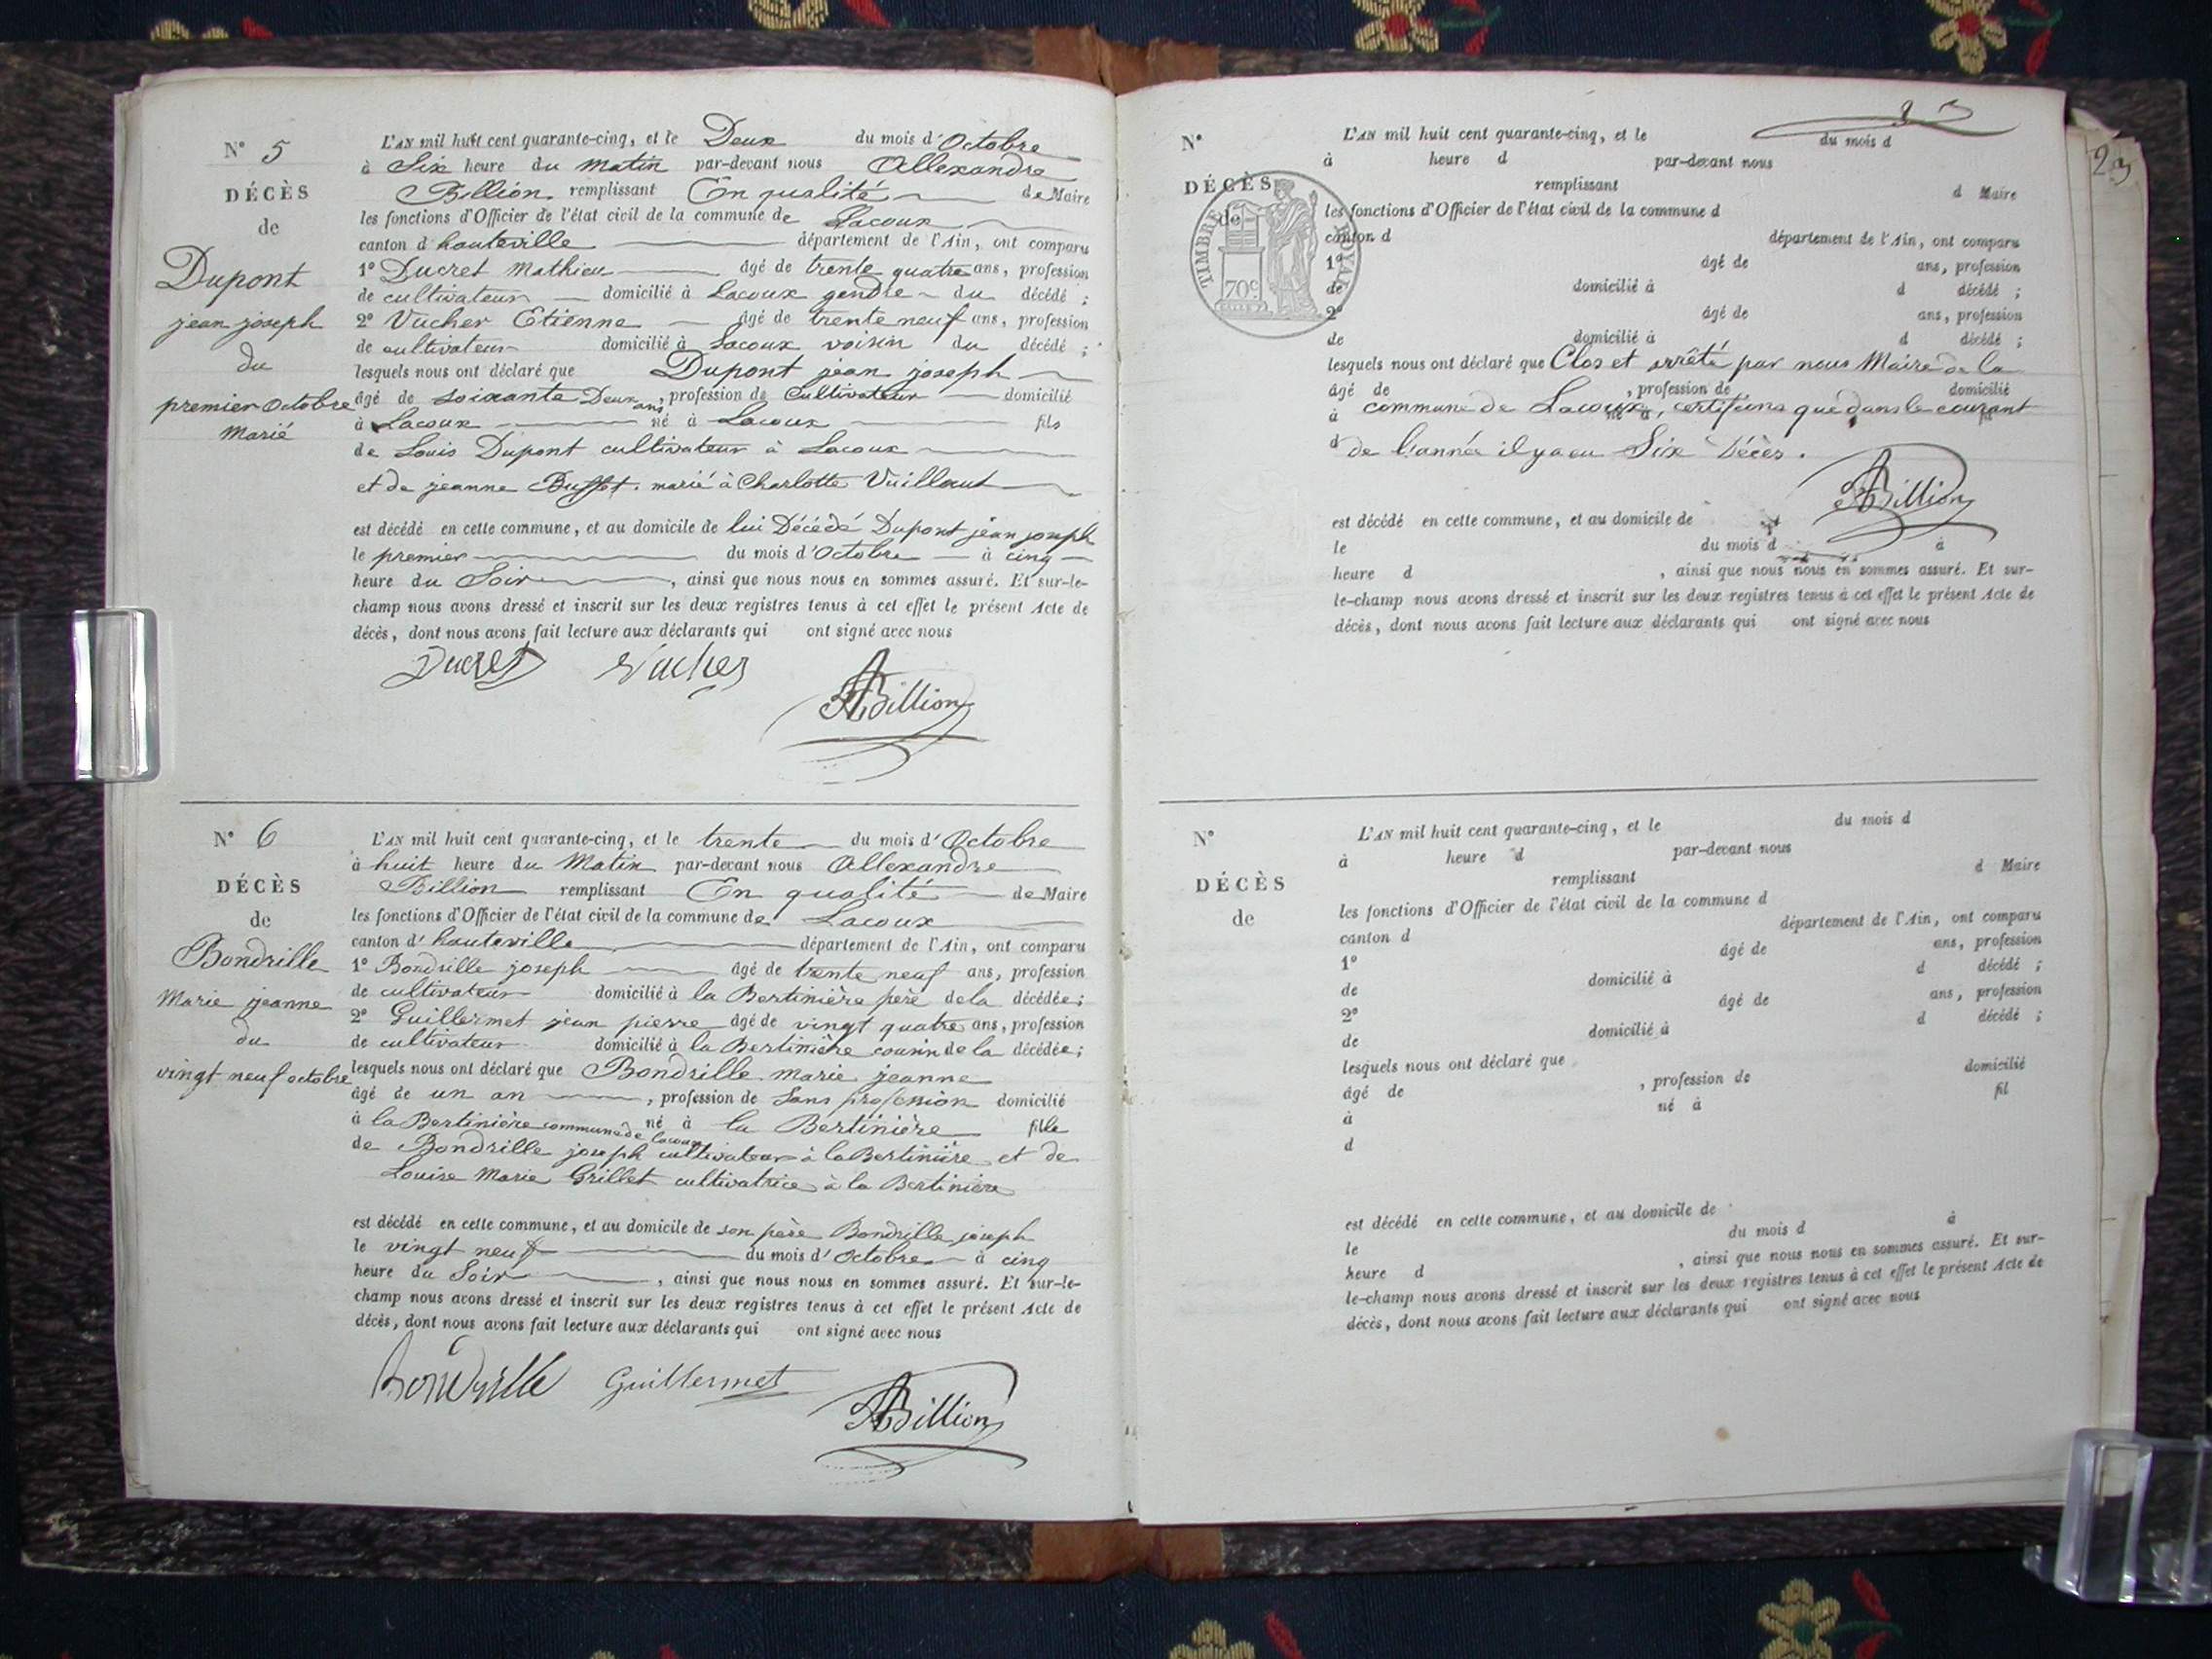 N° 5
DÉCÈS
de
Dupont
jean joseph
du
premier octobre
Marié
L'AN mil huit cent quarante-cinq, et le Deux du mois d'Octobre
à Six heure du Matin par-devant nous Allexandre
Billion remplissant En qualité de Maire
les fonctions d'Officier de l'état civil de la commune de Lacoux
canton d'hauteville département de l'Ain, ont comparu
1° Ducret Mathieu âgé de trente quatre ans, profession
de cultivateur domicilié à Lacoux gendre du décédé ;
2° Vucher Etienne âgé de trente neuf ans, profession
de cultivateur domicilié à Lacoux voisin du décédé ;
lesquels nous ont déclaré que Dupont jean joseph
âgé de soixante Deux ans, profession de Cultivateur domicilié
à Lacoux né à Lacoux fils
de Louis Dupont cultivateur à Lacoux
et de jeanne Buffet. marié à Charlotte
est décédé en cette commune, et au domicile de lui Décédé Dupont jean joseph
le premier du mois d'Octobre à cinq
heure du Soir, ainsi que nous nous en sommes assuré. Et sur-le-
champ nous avons dressé et inscrit sur les deux registres tenus à cet effet le présent Acte de
décès, dont nous avons fait lecture aux déclarants qui ont signé avec nous
Ducret Vucher
ABillion
N° 6
DÉCÈS
de
Bondrille
Marie jeanne
du
vingt neuf octobre
L'AN mil huit cent quarante-cinq, et le trente du mois d'Octobre
à huit heure du Matin par-devant nous Allexandre
Billion remplissant En qualité de Maire
les fonctions d'Officier de l'état civil de la commune de Lacoux
canton d'hauteville département de l'Ain, ont comparu
1° Bondrille joseph âgé de trente neuf ans, profession
de cultivateur domicilié à la Bertinière père de la décédée ;
2° Guillermet jean pierre âgé de vingt quatre ans, profession
de cultivateur domicilié à la Bertinière cousin de la décédée ;
lesquels nous ont déclaré que Bondrille marie jeanne
âgé de un an, profession de Sans profession domicilié
à la Bertinière commune de lacoux né à la Bertinière fille
de Bondrille joseph cultivateur à la Bertinière et de
Louise Marie Grillet cultivatrice à la Bertinière
est décédé en cette commune, et au domicile de son père Bondrille joseph
le vingt neuf du mois d'Octobre à cinq
heure du Soir, ainsi que nous nous en sommes assuré. Et sur-le-
champ nous avons dressé et inscrit sur les deux registres tenus à cet effet le présent Acte de
décès, dont nous avons fait lecture aux déclarants qui ont signé avec nous
Bondrille Guillermet
ABillion
23
23
N°
DÉCÈS
de
TIMBRE ROYAL
70c
L'AN mil huit cent quarante-cinq, et le du mois d
à heure d par-devant nous
remplissant d Maire
les fonctions d'Officier de l'état civil de la commune d
canton d département de l'Ain, ont comparu
1° âgé de ans, profession
de domicilié à d décédé ;
2° âgé de ans, profession
de domicilié à d décédé ;
lesquels nous ont déclaré que Clos et arrêté par nous Maire de la
âgé de , profession de domicilié
à commune de Lacoux, certifions que dans le courant
d de l'année il y a eu Six Décès.
ABillion
est décédé en cette commune, et au domicile de
le du mois d à
heure d , ainsi que nous nous en sommes assuré. Et sur-
le-champ nous avons dressé et inscrit sur les deux registres tenus à cet effet le présent Acte de
décès, dont nous avons fait lecture aux déclarants qui ont signé avec nous
N°
DÉCÈS
de
L'AN mil huit cent quarante-cinq, et le du mois d
à heure d par-devant nous
remplissant d Maire
les fonctions d'Officier de l'état civil de la commune d
canton d département de l'Ain, ont comparu
1° âgé de ans, profession
de domicilié à d décédé ;
2° âgé de ans, profession
de domicilié à d décédé ;
lesquels nous ont déclaré que
âgé de , profession de domicilié
à né à fil
d
est décédé en cette commune, et au domicile de
le du mois d à
heure d , ainsi que nous nous en sommes assuré. Et sur-
le-champ nous avons dressé et inscrit sur les deux registres tenus à cet effet le présent Acte de
décès, dont nous avons fait lecture aux déclarants qui ont signé avec nous